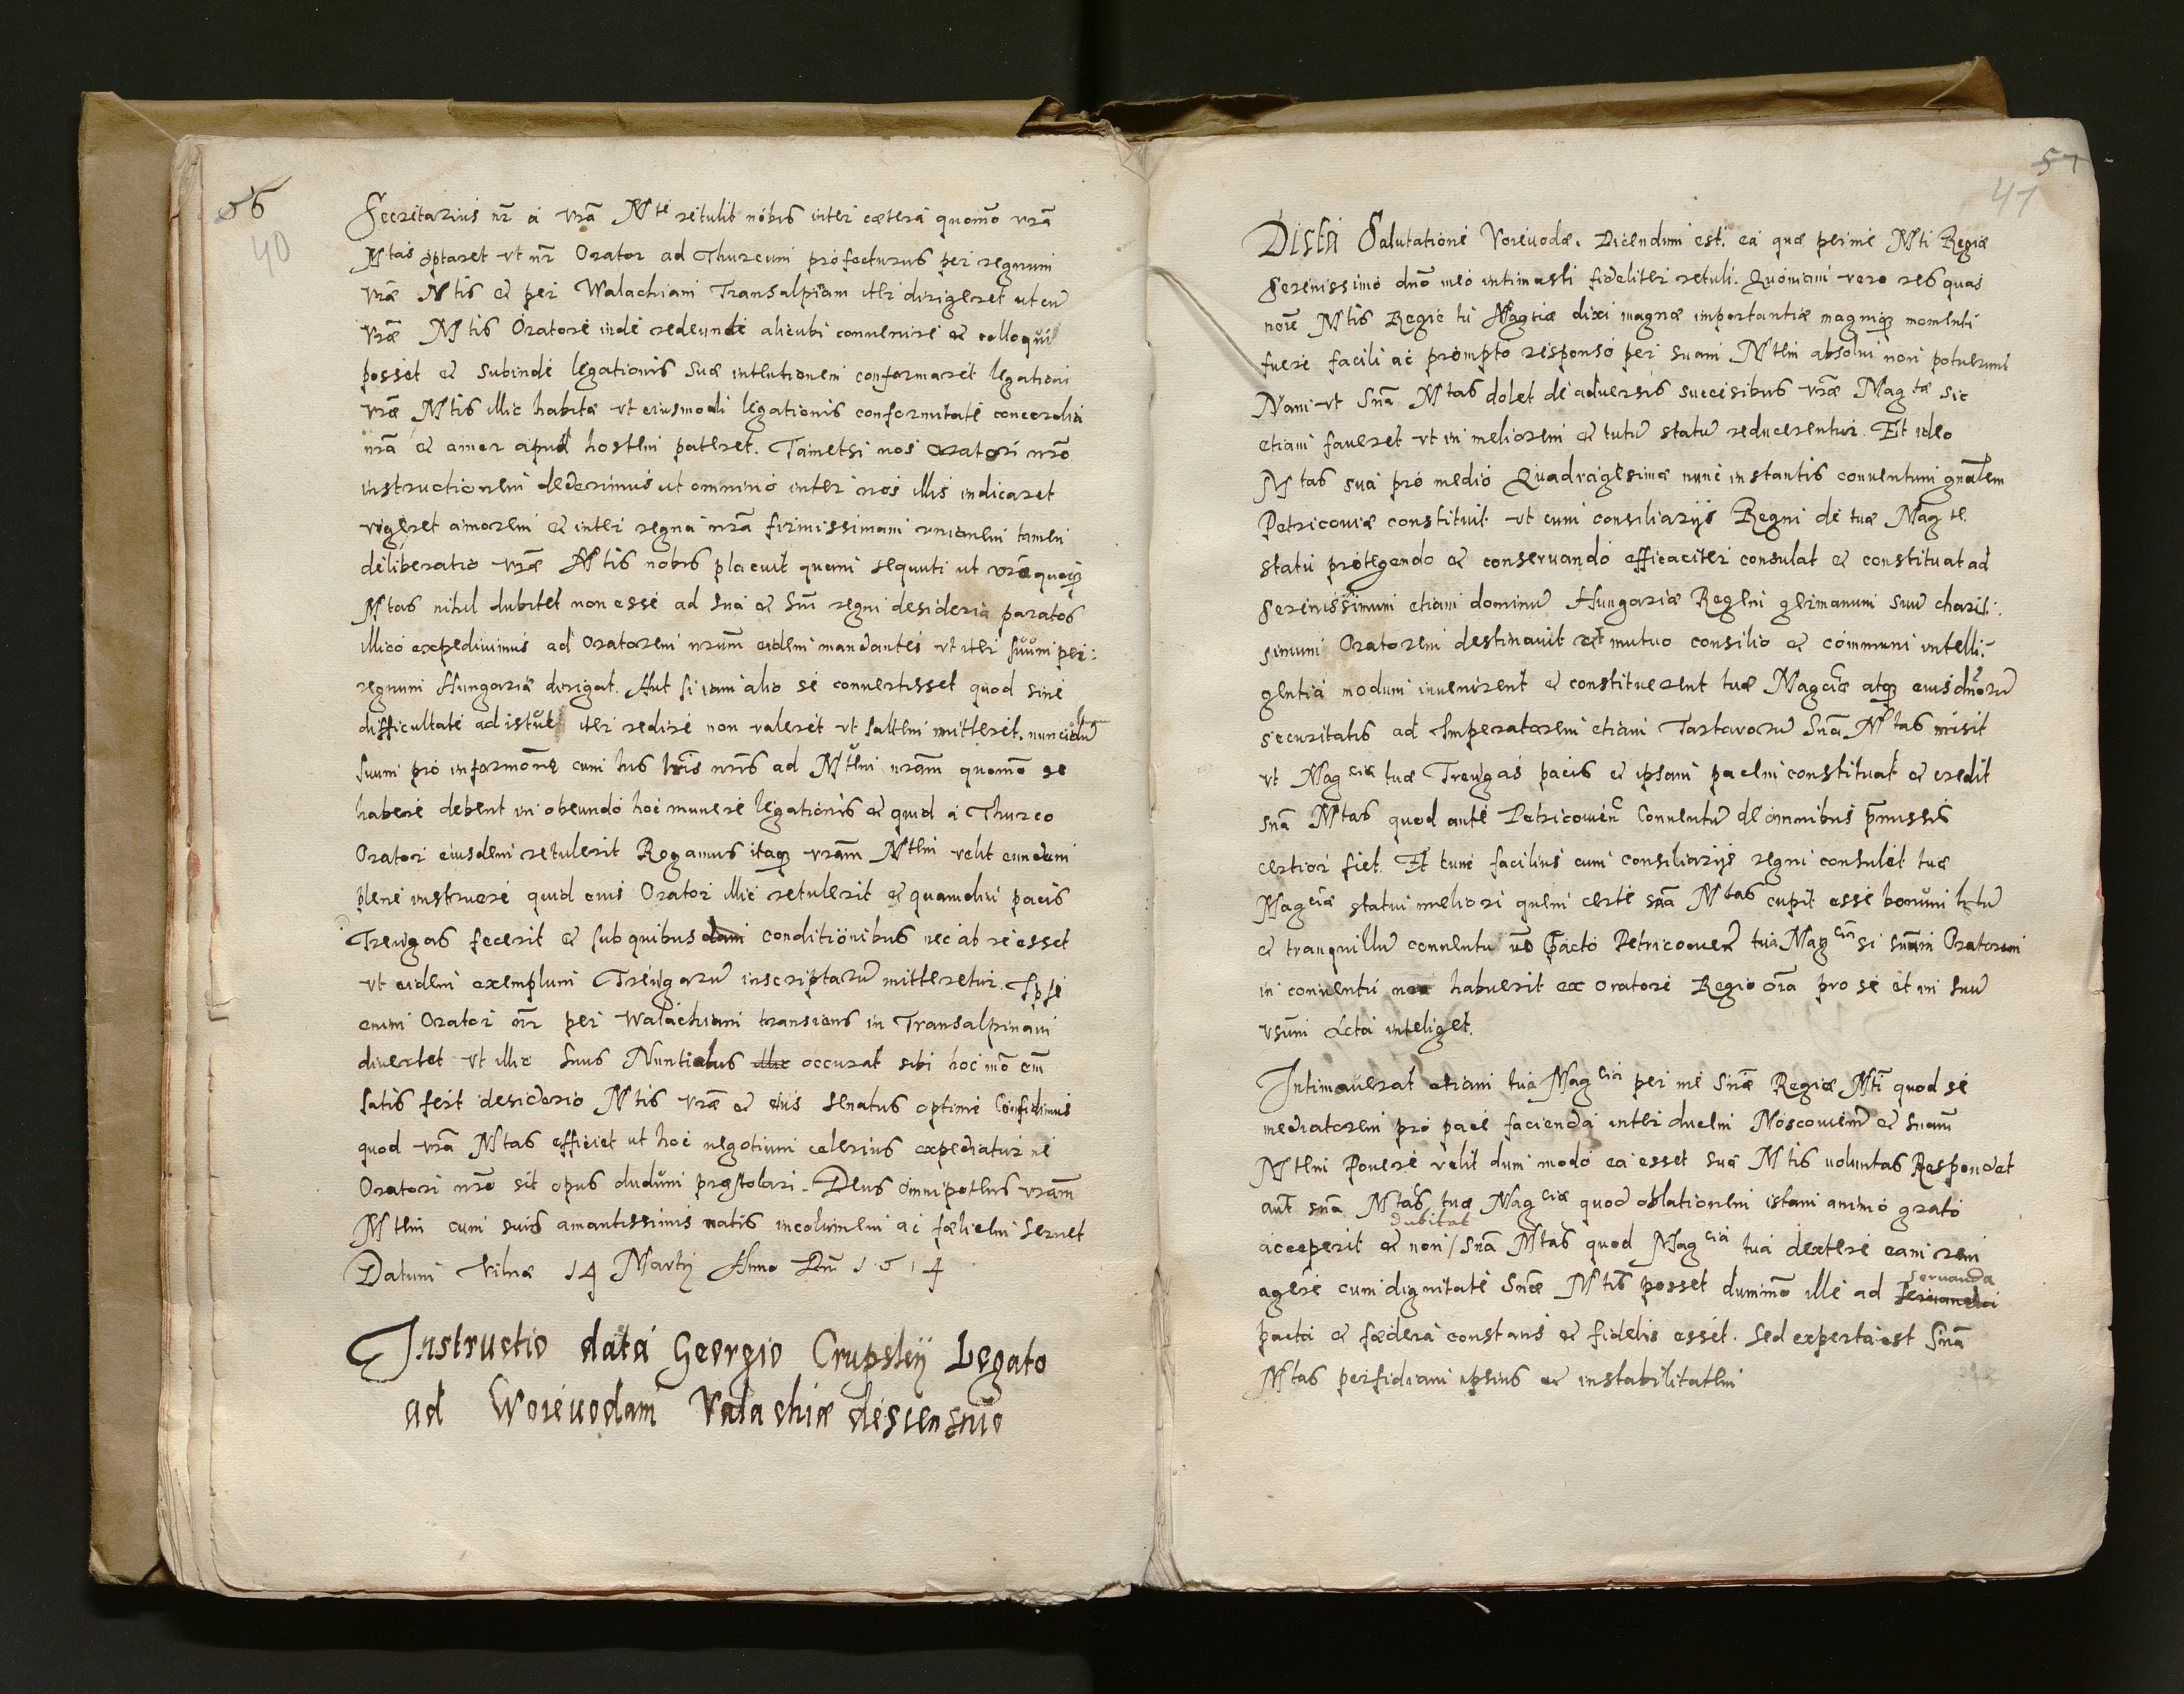 56
40
Secretarius nr̄ a vrā Mte retulit nobis inter cætera quomō vrā
Mtas optaret vt nr̄ Orator ad Thurcum profecturus per regnum
vræ Mtis et per Walachiam Transalpinam iter dirigeret ut cū
vræ Mtis Oratore inde redeunde alicubi convenire et colloqui
posset et subinde legationis suæ intentionem conformaret legationi
vræ Mtis illic habitæ vt eiusmodi legationis conformitate concordia
nrā et amor apud hostem pateret. Tametsi nos oratori nrō
instructionem dederimus ut omnino inter nos illis indicaret
vigeret amorem et inter regna nrā firmissimam vnionem tamen
deliberatio vræ Mtis nobis placuit quam sequuti ut vrā quoqꝫ
Mtas nihil dubitet non esse ad suā et sui regni desideria paratos
illico expedivimus ad Oratorem nrum eidem mandantes vt iter suum per:
regnum Hungariæ dirigat. Aut si iam alio se convertisset quod sine
difficultate ad istuc iter redire non valeret vt saltem mitteret nuncium
suum pro informōne cum his lris nris ad Mtem vram quomō se
habere debent in obeundo hoc munere legationis et quid a Thurco
Orator eiusdem retulerit Rogamus itaqꝫ vram Mtem velit eundem
plene instruere quid eius Orator illic retulerit et quamdiu pacis
Treugas fecerit et sub quibusdam conditionibus nec ab re esset
vt eidem exemplum Treugarū inscriptarū mitteretur. Ipse
enim Orator nr̄ per Walachiam transiens in Transalpinam
divertet vt illic suus Nuntius illic occurat sibi hoc mō em̄
satis fert desiderio Mtis vræ et eius senatus optime confidimus
quod vrā Mtas efficiet ut hoc negotium celerius expediatur ne
Oratori nrō sit opus dudum præstolari. Deus omnipotens vram
Mtem cum suis amantissimis natis incolumem ac fælicem servet
Datum Vilnæ 14 Martij Anno Dn̄i 1514
Instructio data Georgio Crupskij Legato
ad Woievodam Valachiæ descensuro
57
47
Dicta Salutatione Voievodæ. Dicendum est. ea quæ per me Mti Regiæ
Serenissimo dnō meo intimasti fideliter retuli. Quoniam vero res quas
noīe Mtis Regie tu Magciæ dixi magnæ importantiæ magniqꝫ momenti
fuere facili ac prompto responso per suam Mtem absolui non potuerunt
Nam vt Snā Mtas dolet de adversis successibus vræ Magtæ sic
etiam faveret vt in meliorem et tutū statū reducerentur. Et ideo
Mtas sua pro medio Quadragesimæ nunc instantis conventum gnālem
Petricoviæ constituit vt cum consiliarijs Regni de tuæ Magte.
statu protegendo et conservando efficaciter consulat et constituat ad
Serenissimum etiam dominū Hungariæ Regem germanum suū charis:
simum Oratorem destinavit vt mutuo consilio et communi intelli:
gentia modum invenirent et constituerent tuæ Magciæ atqꝫ eius dn̄orū
securitatis ad Imperatorem etiam Tartarorū Snā Mtas misit
vt Magciæ tuæ Treugas pacis et ipsam pacem constituat et credit
snā Mtas quod ante Petricovien̄ Conventū de omnibus præmissis
certior fiet. Et tunc facilius cum consiliarijs regni consulet tuæ
Magciæ statui meliori quem certe snā Mtas cupit esse bonum
et tranquillū conventu vō facto Petricovien̄ tua Magcia si suum Oratorem
in conventu non habuerit ex Oratore Regio oīa pro se et in suū
vsum acta inteliget.
Intimaverat etiam tua Magcia per me Snæ Regiæ Mti quod se
mediatorem pro pace facienda inter ducem Moscovien̄ et Snam
Mtem ponere velit dum modo ea esset suæ Mtis voluntas Respondet
aut snā Mtas tuæ Magciæ quod oblationem istam animo grato
acceperit et non / dubitat snā Mtas quod Magcia tua dextere eam rem
agere cum dignitate Snæ Mtis posset dummō ille ad servandi servanda
pacta et fædera constans et fidelis esset. Sed experta est Snā
Mtas perfidiam ipsius et instabilitatem